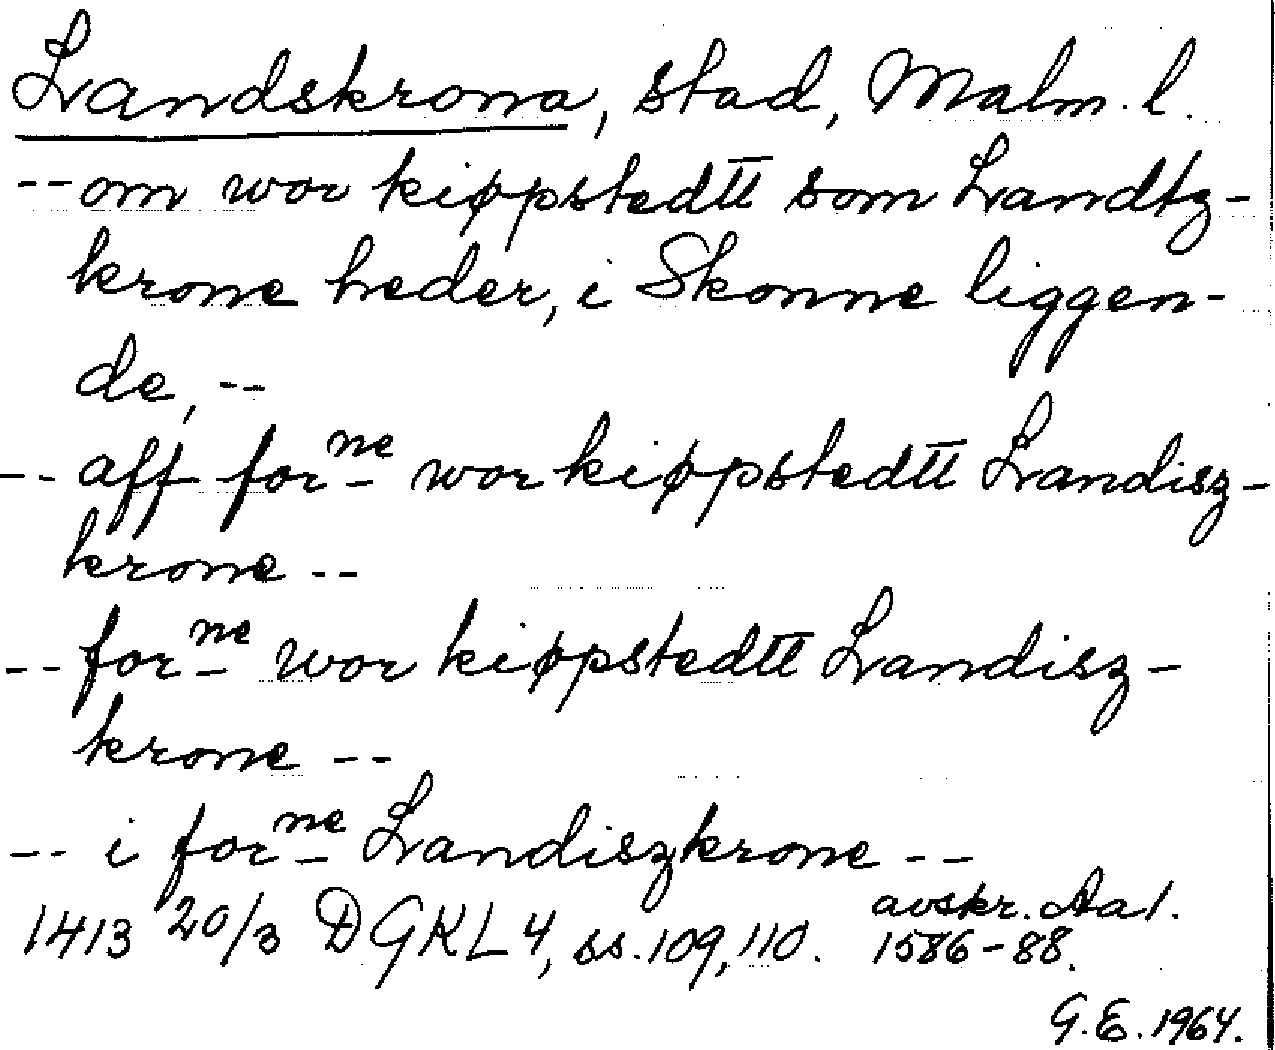 Landskrona, stad, Malm. l.
-- om wor kiøpstedtt som Landtz-
krone heder, i Skonne liggen-
de, --
-- aff forne wor kiøpstedtt Landisz-
krone --
-- forne wor kiøpstedtt Landisz-
krone --
-- i forne Landiszkrone --
1413 20/3 DGKL 4, ss. 109, 110. avskr. Aa 1.
1586-88.
G.E. 1964.